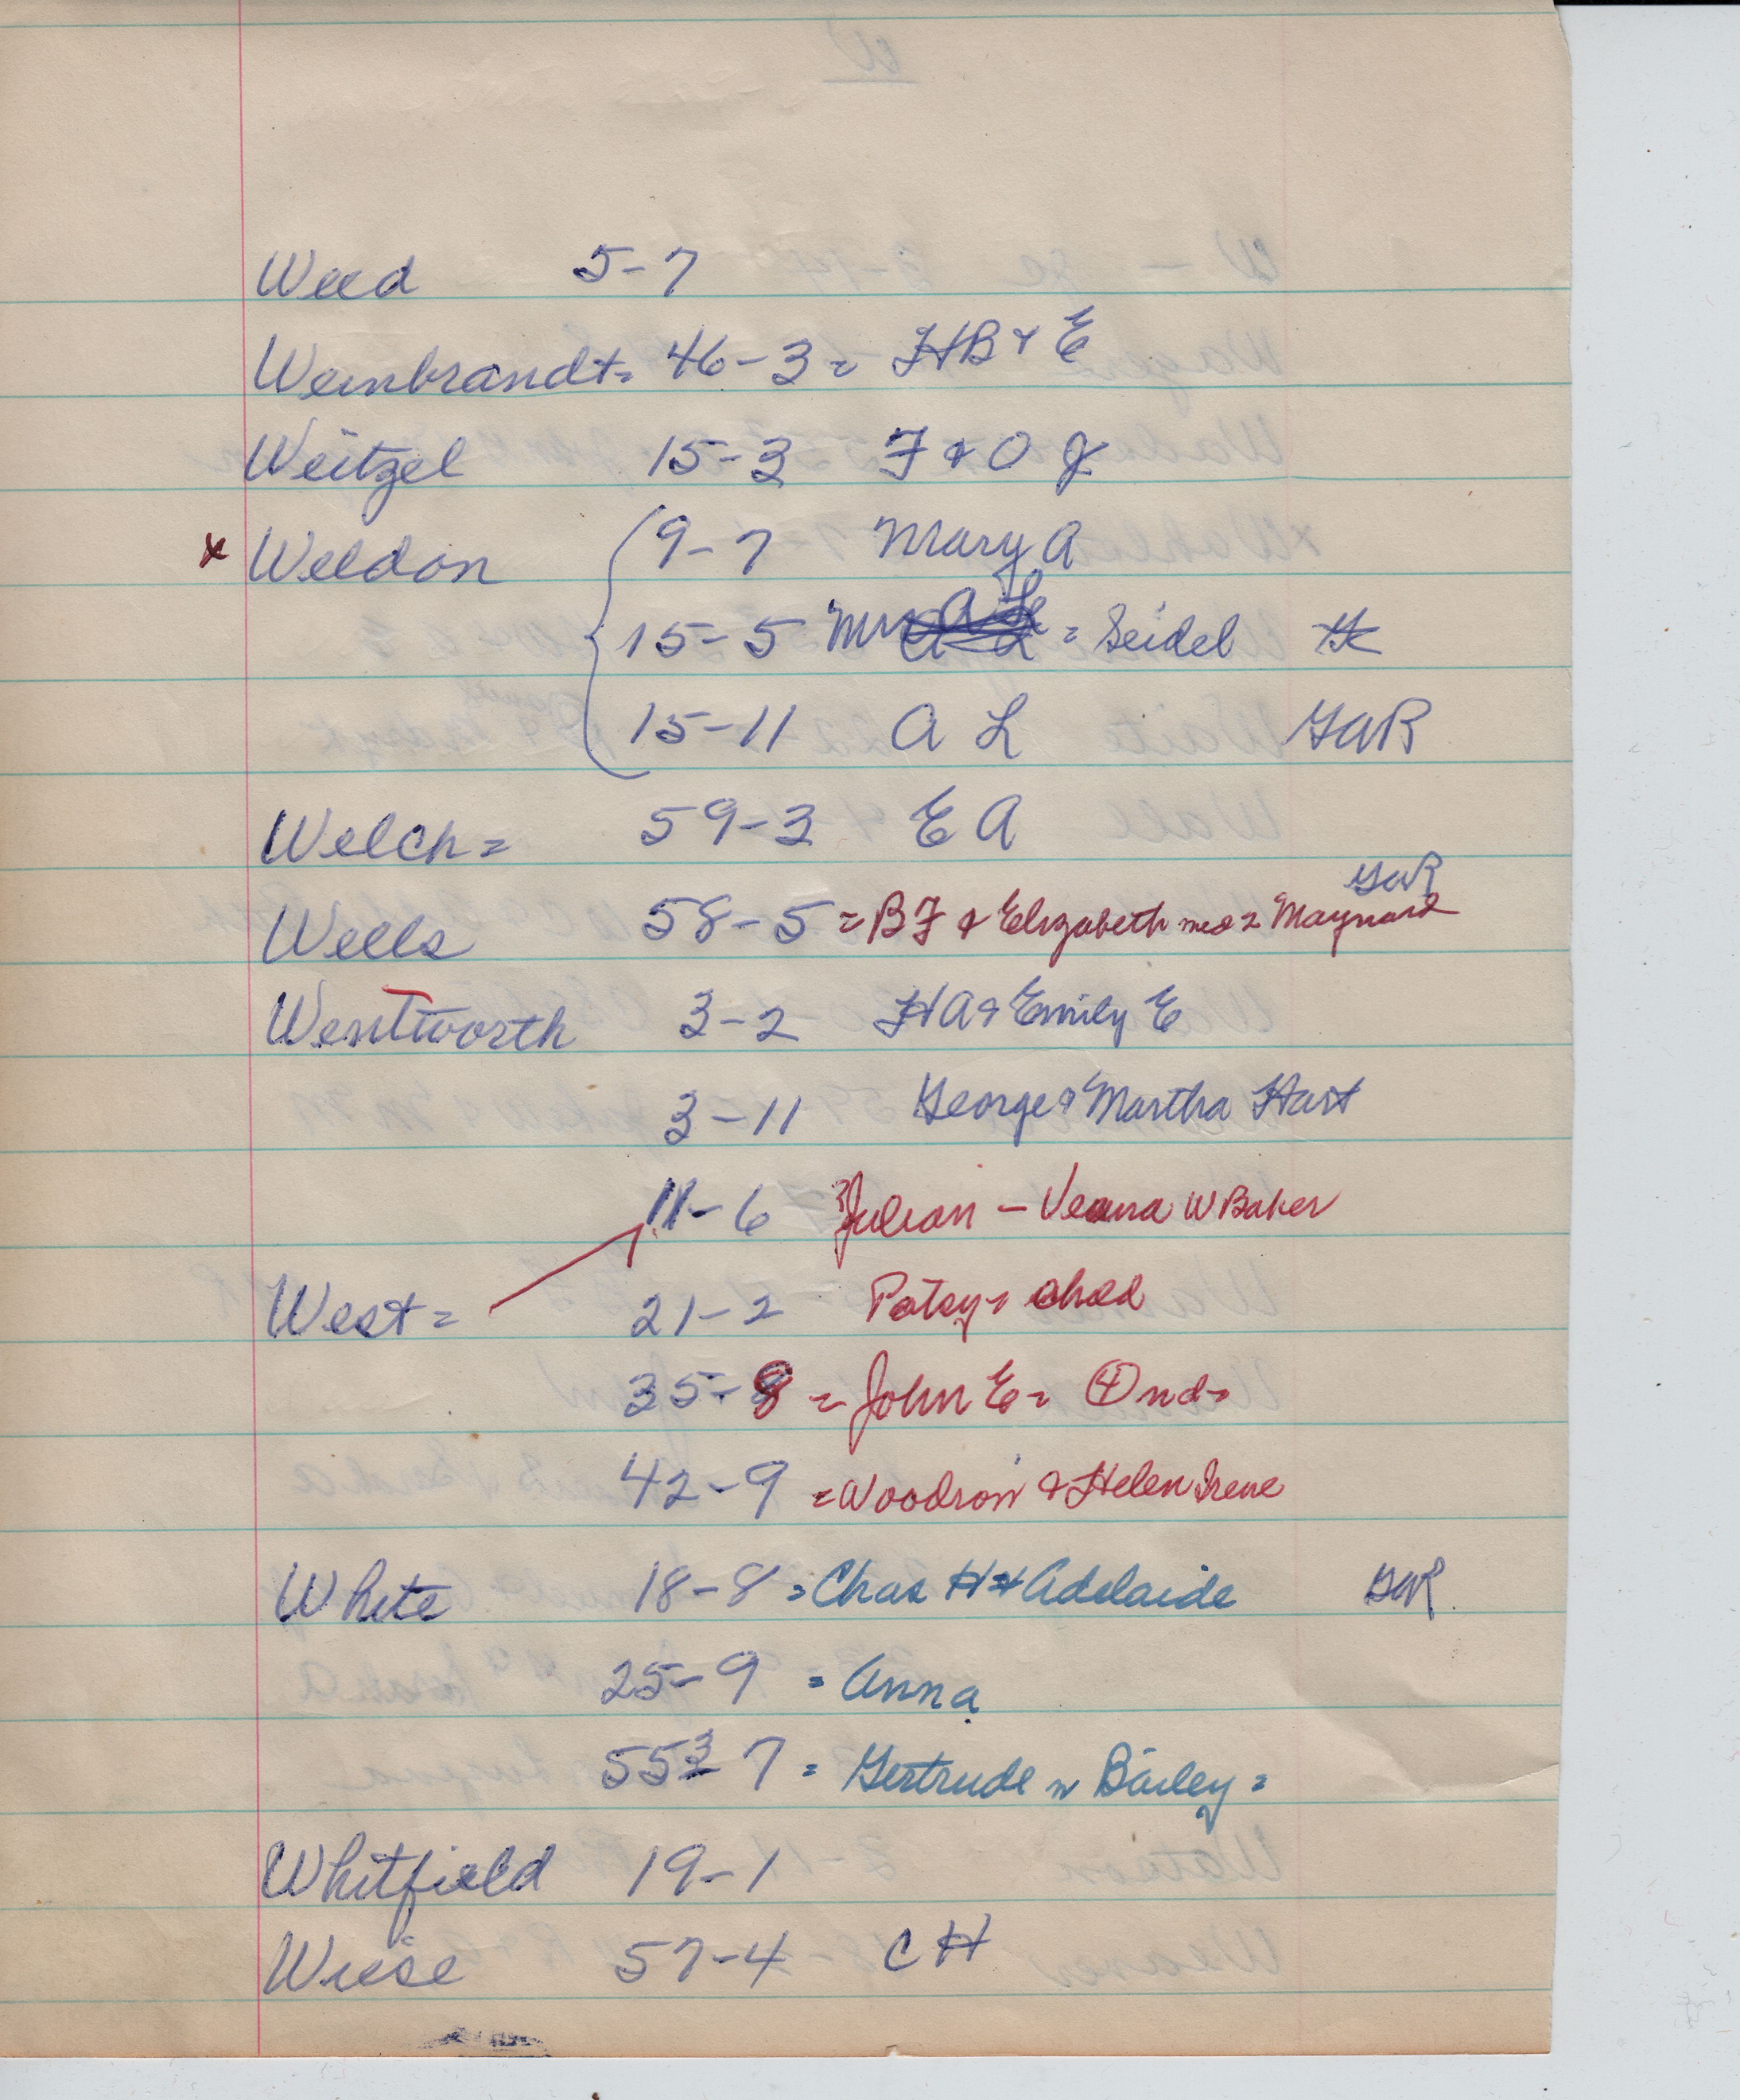 Weed 5-7
Weinbrandt= 46-3= HB & E
Weitzel 15-3 F & O J
x Weldon 9-7 Mary A
15-5 Mrs A L = Seidel
15-11 A L GAR
Welch= 59-3 E A
GAR
Wells 58-5 = BF & Elizabeth = Maynard
Wentworth 3-2 HA & Emily E
3-11 George & Martha Hart
11-6 Julian - W Baker
West= 21-2 Patsy=
35-8 = John E= 4 nd=
42-9 = Woodrow & Helen Irene
White 18-8 = Chas H & Adelaide GAR
25-9 = Anna
55-7 = Gertrude w Bailey=
Whitfield 19-1
Wiese 57-4 C H